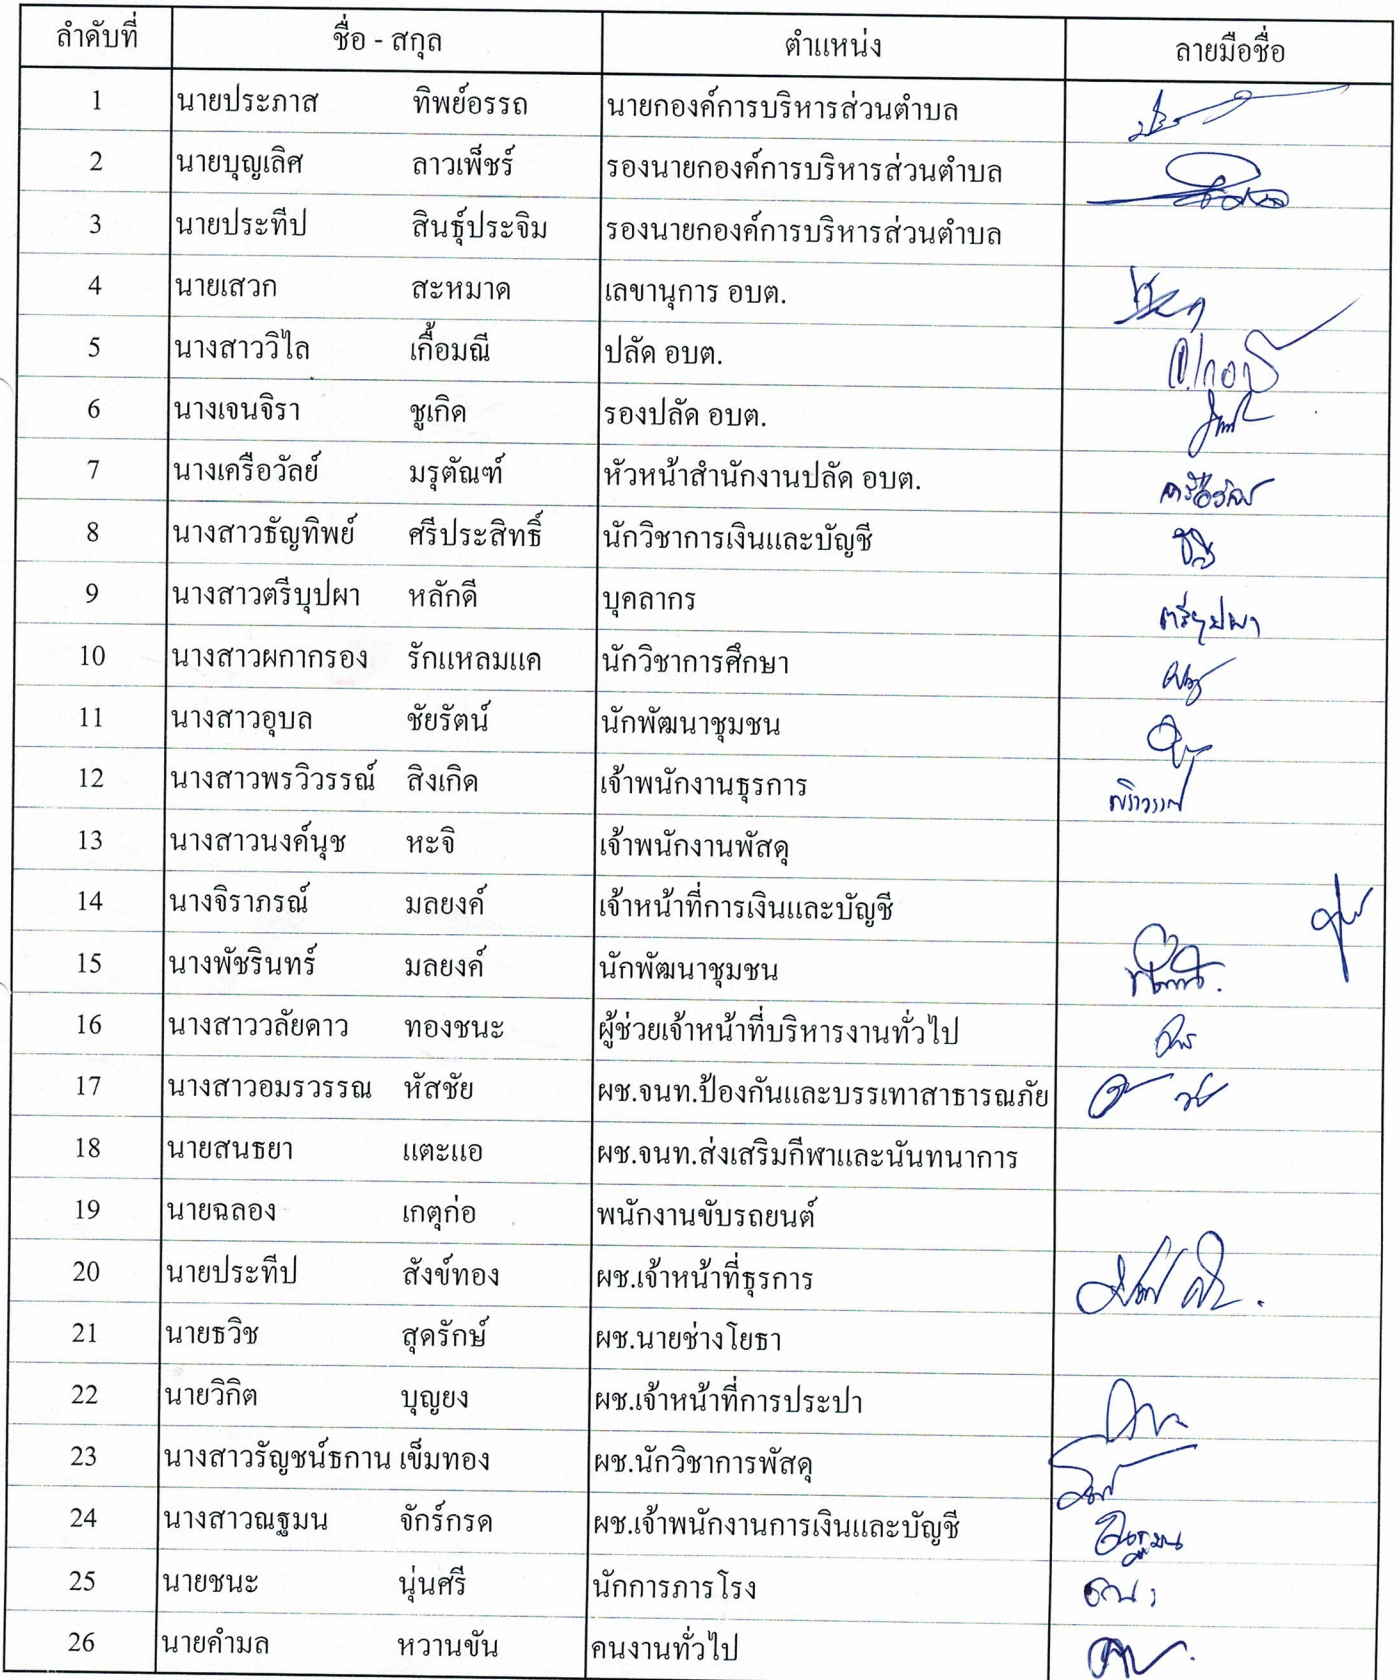 ลำดับที่ ชื่อ - สกุล ตำแหน่ง ลายมือชื่อ
1 นายประภาส ทิพย์อรรถ นายกองค์การบริหารส่วนตำบล
2 นายบุญเลิศ ลาวเพ็ชร์ รองนายกองค์การบริหารส่วนตำบล
3 นายประทีป สินธุ์ประจิม รองนายกองค์การบริหารส่วนตำบล
4 นายเสวก สะหมาด เลขานุการ อบต.
5 นางสาววิไล เกื้อมณี ปลัด อบต.
6 นางเจนจิรา ชูเกิด รองปลัด อบต.
7 นางเครือวัลย์ มรุตัณฑ์ หัวหน้าสำนักงานปลัด อบต. เครือวัลย์
8 นางสาวธัญทิพย์ ศรีประสิทธิ์ นักวิชาการเงินและบัญชี
9 นางสาวตรีบุปผา หลักดี บุคลากร ตรีบุปผา
10 นางสาวผกากรอง รักแหลมแค นักวิชาการศึกษา
11 นางสาวอุบล ชัยรัตน์ นักพัฒนาชุมชน
12 นางสาวพรวิวรรณ์ สิงเกิด เจ้าพนักงานธุรการ
13 นางสาวนงค์นุช หะจิ เจ้าพนักงานพัสดุ
14 นางจิราภรณ์ มลยงค์ เจ้าหน้าที่การเงินและบัญชี
15 นางพัชรินทร์ มลยงค์ นักพัฒนาชุมชน
16 นางสาววลัยดาว ทองชนะ ผู้ช่วยเจ้าหน้าที่บริหารงานทั่วไป
17 นางสาวอมรวรรณ หัสชัย ผช.จนท.ป้องกันและบรรเทาสาธารณภัย
18 นายสนธยา แตะแอ ผช.จนท.ส่งเสริมกีฬาและนันทนาการ
19 นายฉลอง เกตุก่อ พนักงานขับรถยนต์
20 นายประทีป สังข์ทอง ผช.เจ้าหน้าที่ธุรการ
21 นายธวิช สุดรักษ์ ผช.นายช่างโยธา
22 นายวิกิต บุญยง ผช.เจ้าหน้าที่การประปา
23 นางสาวรัญชน์ธกาน เข็มทอง ผช.นักวิชาการพัสดุ
24 นางสาวณฐมน จักร์กรด ผช.เจ้าพนักงานการเงินและบัญชี
25 นายชนะ นุ่นศรี นักการภารโรง
26 นายคำมล หวานขัน คนงานทั่วไป